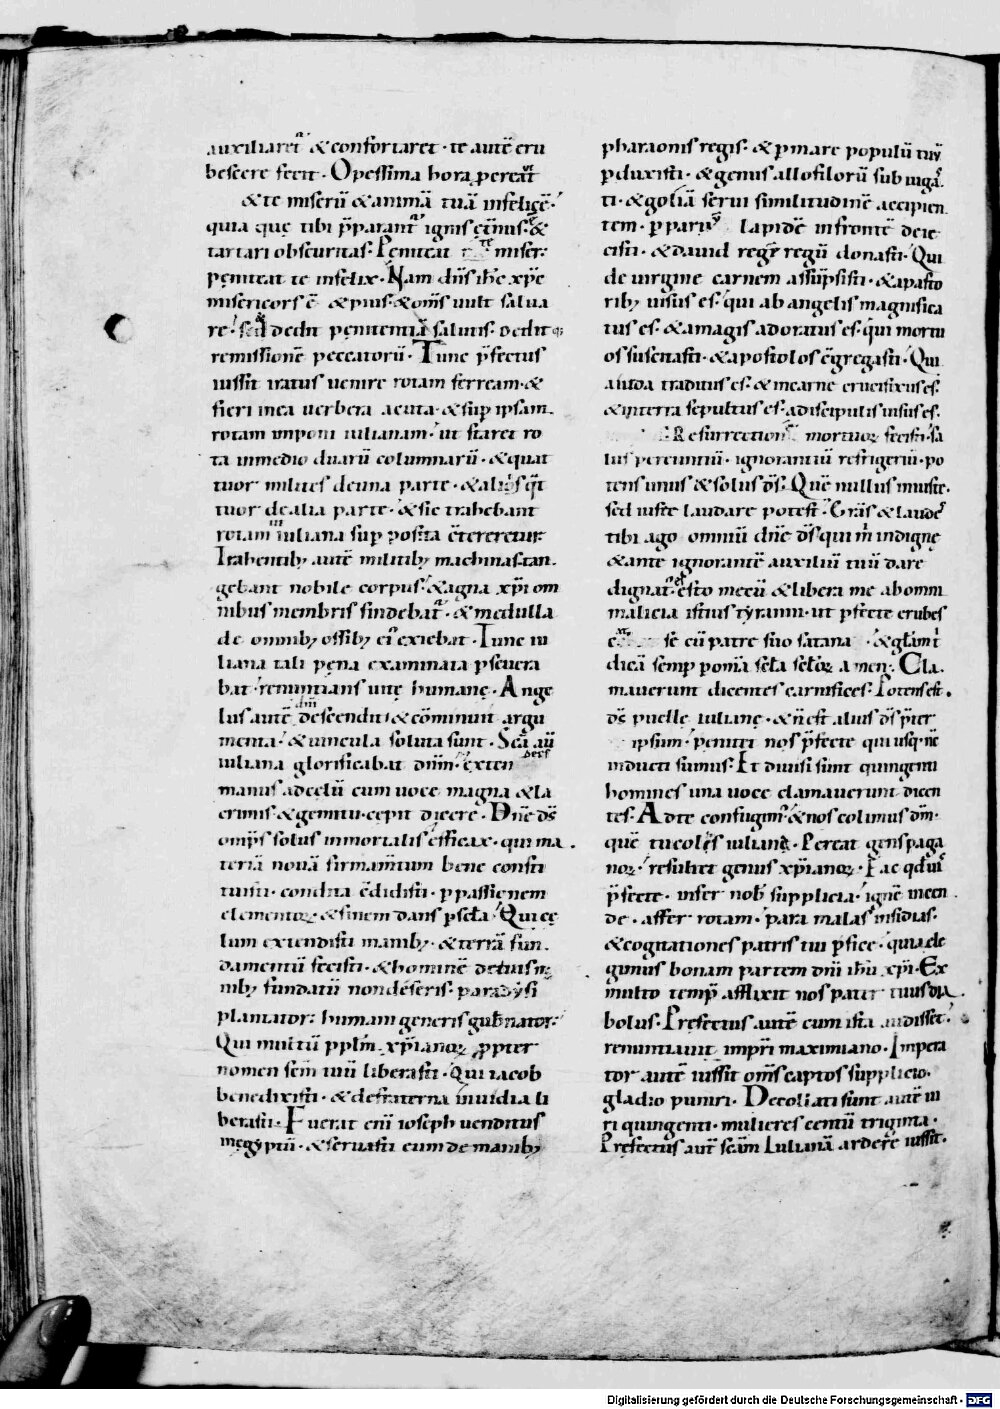 auxiliaret᷑ & confortaret · te autē eru
bescere fecit · O pessima hora pereat
& te miserū & animā tuā infelicē ·
quia quę tibi p̄parant᷑ ignis et̄nus · &
tartari obscuritas · Peniteat te miser ·
peniteat te infelix · Nam dn̄s ih̄c xp̄c
misericors ē & pius · & om̄s uult salua
re · dedit penitentiā salutis · dedit
remissionē peccatorū · Tunc p̄fectus
iussit iratus uenire rotam ferream · &
fieri in ea uerbera acuta · & sup ipsam
rotam imponi iulianam · ut staret ro
ta in medio duarū columnarū · & quat
tuor milites de una parte · & alios q̄t
tuor de alia parte · & sic trahebant
rotam iuliana sup posita c̄tereretur
Trahentib; autē militib; machinas · tan
gebant nobile corpus · & agna xp̄i om
nibus membris findebat᷑ · & medulla
de omnib; ossib; ei᷒ exiebat · Tunc iu
liana tali pena examinata pseuera
bat · renuntians uitę humanę · Ange
lus autē dn̄i descendit · & cōminuit argu
menta · & uincula soluta sunt · Sc̄a au
iuliana glorificabat dn̄m · exten
manus ad celū cum uoce magna & la
crimis & gemitu · cepit dicere · Dn̄e ds̄
omp̄s solus inmortalis efficax · qui ma
teriā nouā firmam̄tum bene consti
tuisti · condita ēdidisti · p passionem
elementoꝝ · & finem dans p sc̄la · Qui cę
lum extendisti manib; · & terrā fun
damentū fecisti · & hominē de tuis m
nib; fundatū non deseris · paradysi
plantator : humani generis gub̄nator ·
Qui multū pplm̄ xp̄ianoꝝ ppter
nomen sc̄m tuū liberasti · Qui iacob
benedixisti · & de fraterna inuidia li
berasti · Fuerat eni ioseph uenditus
in egyptū · & seruasti eum de manib;
pharaonis regis · & p mare populū tuū
pduxisti · & genus allofilorū subiuga
ti · & goliā serui similitudinē accipien
tem · p paruū lapidē in frontē deie
cisti · & dauid regē regū donasti · Qui
de uirgine carnem assūpsisti · & a pasto
rib; uisus es · qui ab angelis magnifica
tus es · & a magis adoratus es · qui mortu
os suscitasti · & apostolos c̄gregasti · Qui
a iuda traditus es · & in carne crucifixus es ·
& in terra sepultus es · a discipulis uisus es ·
Resurrectionē mortuoꝝ fecisti · sa
lus pereuntiū · ignorantiū refrigeriū · po
tens unus & solus ds̄ · Quē nullus iniuste ·
sed iuste laudare potest · Gr̄as & laudē
tibi ago omniū dn̄e ds̄ qui m̄ indignę
& ante ignorantē auxiliū tuū dare
dignat᷒ es · esto mecū & libera me ab omni
malicia istius tyranni · ut pfecte erubes
se cū patre suo satana · & gl̄am t̄
dicā semp p omīa sc̄la sc̄loꝝ amen · Cla
mauerunt dicentes carnifices · Potens est
ds̄ puelle iulianę · & n̄ est alius ds̄ p̄ter
ipsum · peniteri nos p̄fecte qui usq; nc̄
inducti sumus · Et diuisi sunt quingenti
homines una uoce clamauerunt dicen
tes · Ad te confugim᷒ · & nos colimus dm̄ ·
quē tu colis iuliana · Pereat gens paga
noꝝ · resultet genus xp̄ianoꝝ · Fac qd uis
p̄fecte · infer nob᷒ supplicia · ignē incen
de · affer rotam · para malas insidias ·
& cogitationes patris tui pfice · quia ele
gimus bonam partem dn̄i ih̄u xp̄i · Ex
multo temp̄ afflixit nos pater tuus dia
bolus · Prefectus autē cum ista audisset ·
renuntiauit impr̄i maximiano · Impera
tor autē iussit om̄s captos supplicio
gladio puniri · Decollati sunt autē ui
ri quingenti · mulieres centū triginta ·
Prefectus aut̄ sc̄am Iulianā arderē iussit ·
Digitalisierung gefördert durch die Deutsche Forschungsgemeinschaft - DFG